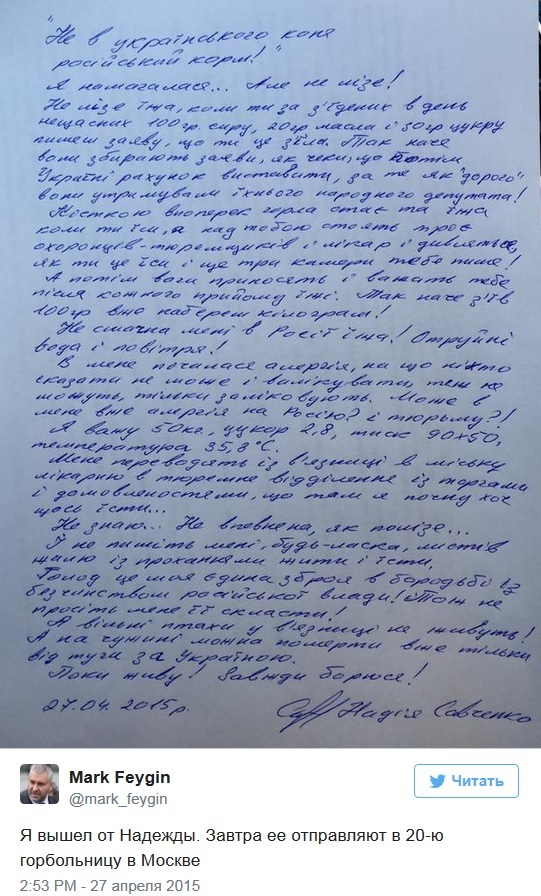 "Не в українського коня
російський корм!"
Я намагалася... Але не лізе!
Не лізе їжа, коли ти за з'їдених в день
нещасних 100гр. сиру, 20гр масла і 30гр цукру
пишеш заяву, що ти це з'їла. Так наче
вони збирають заяви, як чеки, що потім
Україні рахунок виставити, за те як "дорого"
вони утримували їхнього народного депутата!
Кісткою впоперек горла стає та їжа
коли ти їси, а над тобою стоять троє
охоронців-тюремщиків і лікар і дивляться,
як ти це їси і ще три камери тебе пише!
А потім ваги приносять і важать тебе
після кожного прийому їжі. Так наче з'їв
100гр вже наберет кілограм!
Не смачна мені в Росії їжа! Отруйні
вода і повітря!
В мене почалася алергія, на що ніхто
сказати не може і вилікувати, теж не
можуть, тільки заліковують. Може в
мене вже алергія на Росію? і тюрьму?!
Я важу 50кг., цукор 2,8, тиск 90х50,
температура 35,8°С.
Мене переводять із в'язниці в міську
лікарню в тюремне відділення із торгами
і домовленостями, що там я почну хоч
щось їсти...
Не знаю... Не впевнена, як полізе...
І не пишіть мені, будь-ласка, листів
жалю із проханнями жити і їсти.
Голод це моя єдина зброя в бородьбі із
безчинством російської влади! Тож не
просіть мене її скласти!
А вільні птахи у в'язниці не живуть!
А на чужині можна померти вже тільки
від туги за Україною.
Поки живу! Завжди борюся!
27.04.2015р. Надія Савченко
Mark Feygin
@mark_feygin
Читать
Я вышел от Надежды. Завтра ее отправляют в 20-ю
горбольницу в Москве
2:53 PM - 27 апреля 2015